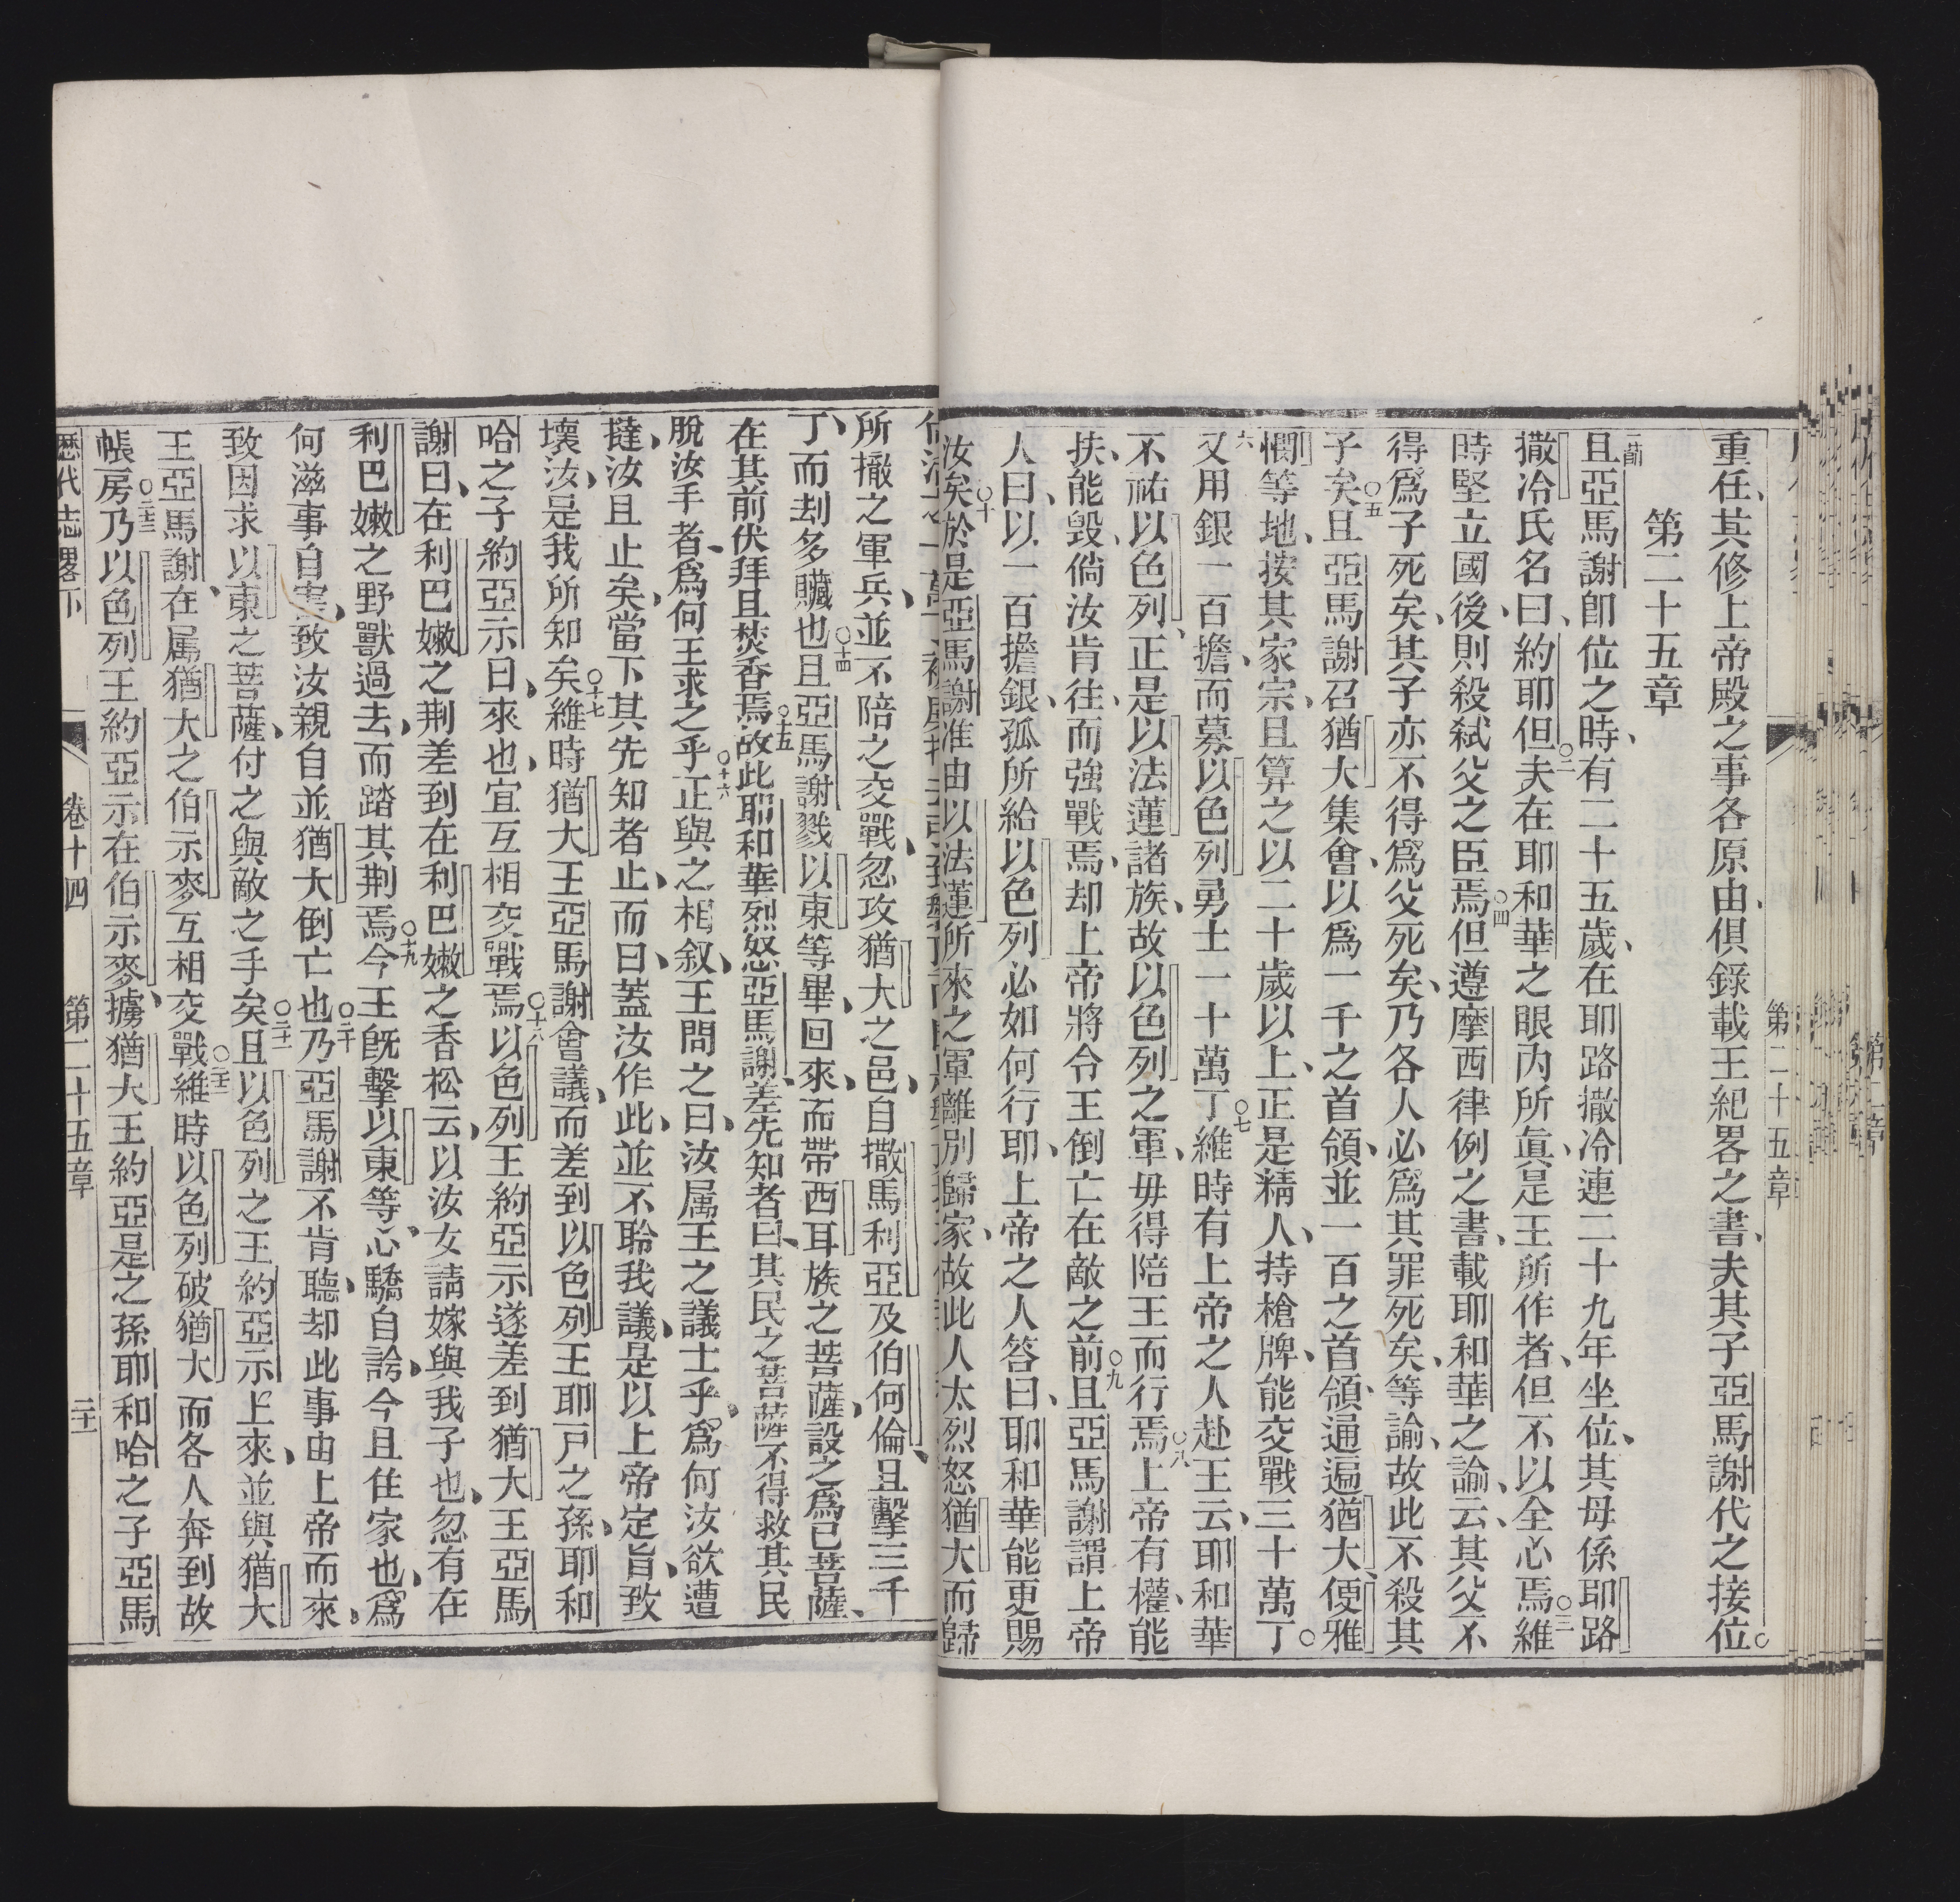 重任、其修上帝殿之事各原由、俱錄載王紀畧之書、夫其子亞馬謝代之接位。
第二十五章
一節 且亞馬謝即位之時、有二十五歲、在耶路撒冷連二十九年坐位、其母係耶路
撒冷氏名曰、約耶但○二夫在耶和華之眼內所眞、是王所作者、但不以全心焉○三維
時堅立國後、則殺弒父之臣焉○四但遵摩西律例之書、載耶和華之諭、云、其父不
得爲子死矣、其子亦不得爲父死矣、乃各人必爲其罪死矣、等諭、故此不殺其
子矣○五且亞馬謝召猶大集會、以爲一千之首領、並一百之首領、通遍猶大、便雅
憫等地、按其家宗、且算之以二十歲以上、正是精人、持槍牌、能交戰三十萬丁○
六又用銀一百擔、而募以色列勇士一十萬丁○七維時有上帝之人赴王云、耶和華
不祐以色列、正是以法蓮諸族、故以色列之軍、毋得陪王而行焉○八上帝有權、能
扶、能毀、倘汝肯往、而強戰焉、却上帝將令王倒亡在敵之前○九且亞馬謝謂上帝
人曰、以一百擔銀、孤所給以色列必如何行耶、上帝之人答曰、耶和華能更賜
汝矣○十於是亞馬謝准由以法蓮所來之軍離別歸家、故此人太烈怒猶大而歸
所撤之軍兵、並不陪之交戰、忽攻猶大之邑、自撒馬利亞及伯何倫、且擊三千
丁、而刦多贓也○十四且亞馬謝戮以東等畢、回來、而帶西耳族之菩薩、設之爲已菩薩、
在其前伏拜且焚香焉○十五故此耶和華烈怒亞馬謝、差先知者曰、其民之菩薩不得救其民
脫汝手者、爲何王求之乎○十六正與之相叙、王問之曰、汝属王之議士乎、爲何汝欲遭
撻、汝且止矣、當下其先知者止、而曰、蓋汝作此、並不聆我議、是以上帝定旨、致
壞汝、是我所知矣○十七維時猶大王亞馬謝會議、而差到以色列王耶戸之孫、耶和
哈之子約亞示曰、來也、宜互相交戰焉○十八以色列王約亞示遂差到猶大王亞馬
謝曰、在利巴嫩之荆差到在利巴嫩之香松云、以汝女請嫁與我子也、忽有在
利巴嫩之野獸過去、而踏其荆焉○十九今王旣擊以東等、心驕自誇、今且住家也、爲
何滋事自害、致汝親自並猶大倒亡也○二十乃亞馬謝不肯聽、却此事由上帝而來、
致因求以東之菩薩、付之與敵之手矣○二十一且以色列之王約亞示上來、並與猶大
王亞馬謝、在属猶大之伯示麥互相交戰○二十二維時以色列破猶大 而各人奔到故
帳房○二十三乃以色列王約亞示在伯示麥、擄猶大王約亞是之孫耶和哈之子亞馬
歷代志畧下 卷十四 第二十五章 二十一
第二十五章